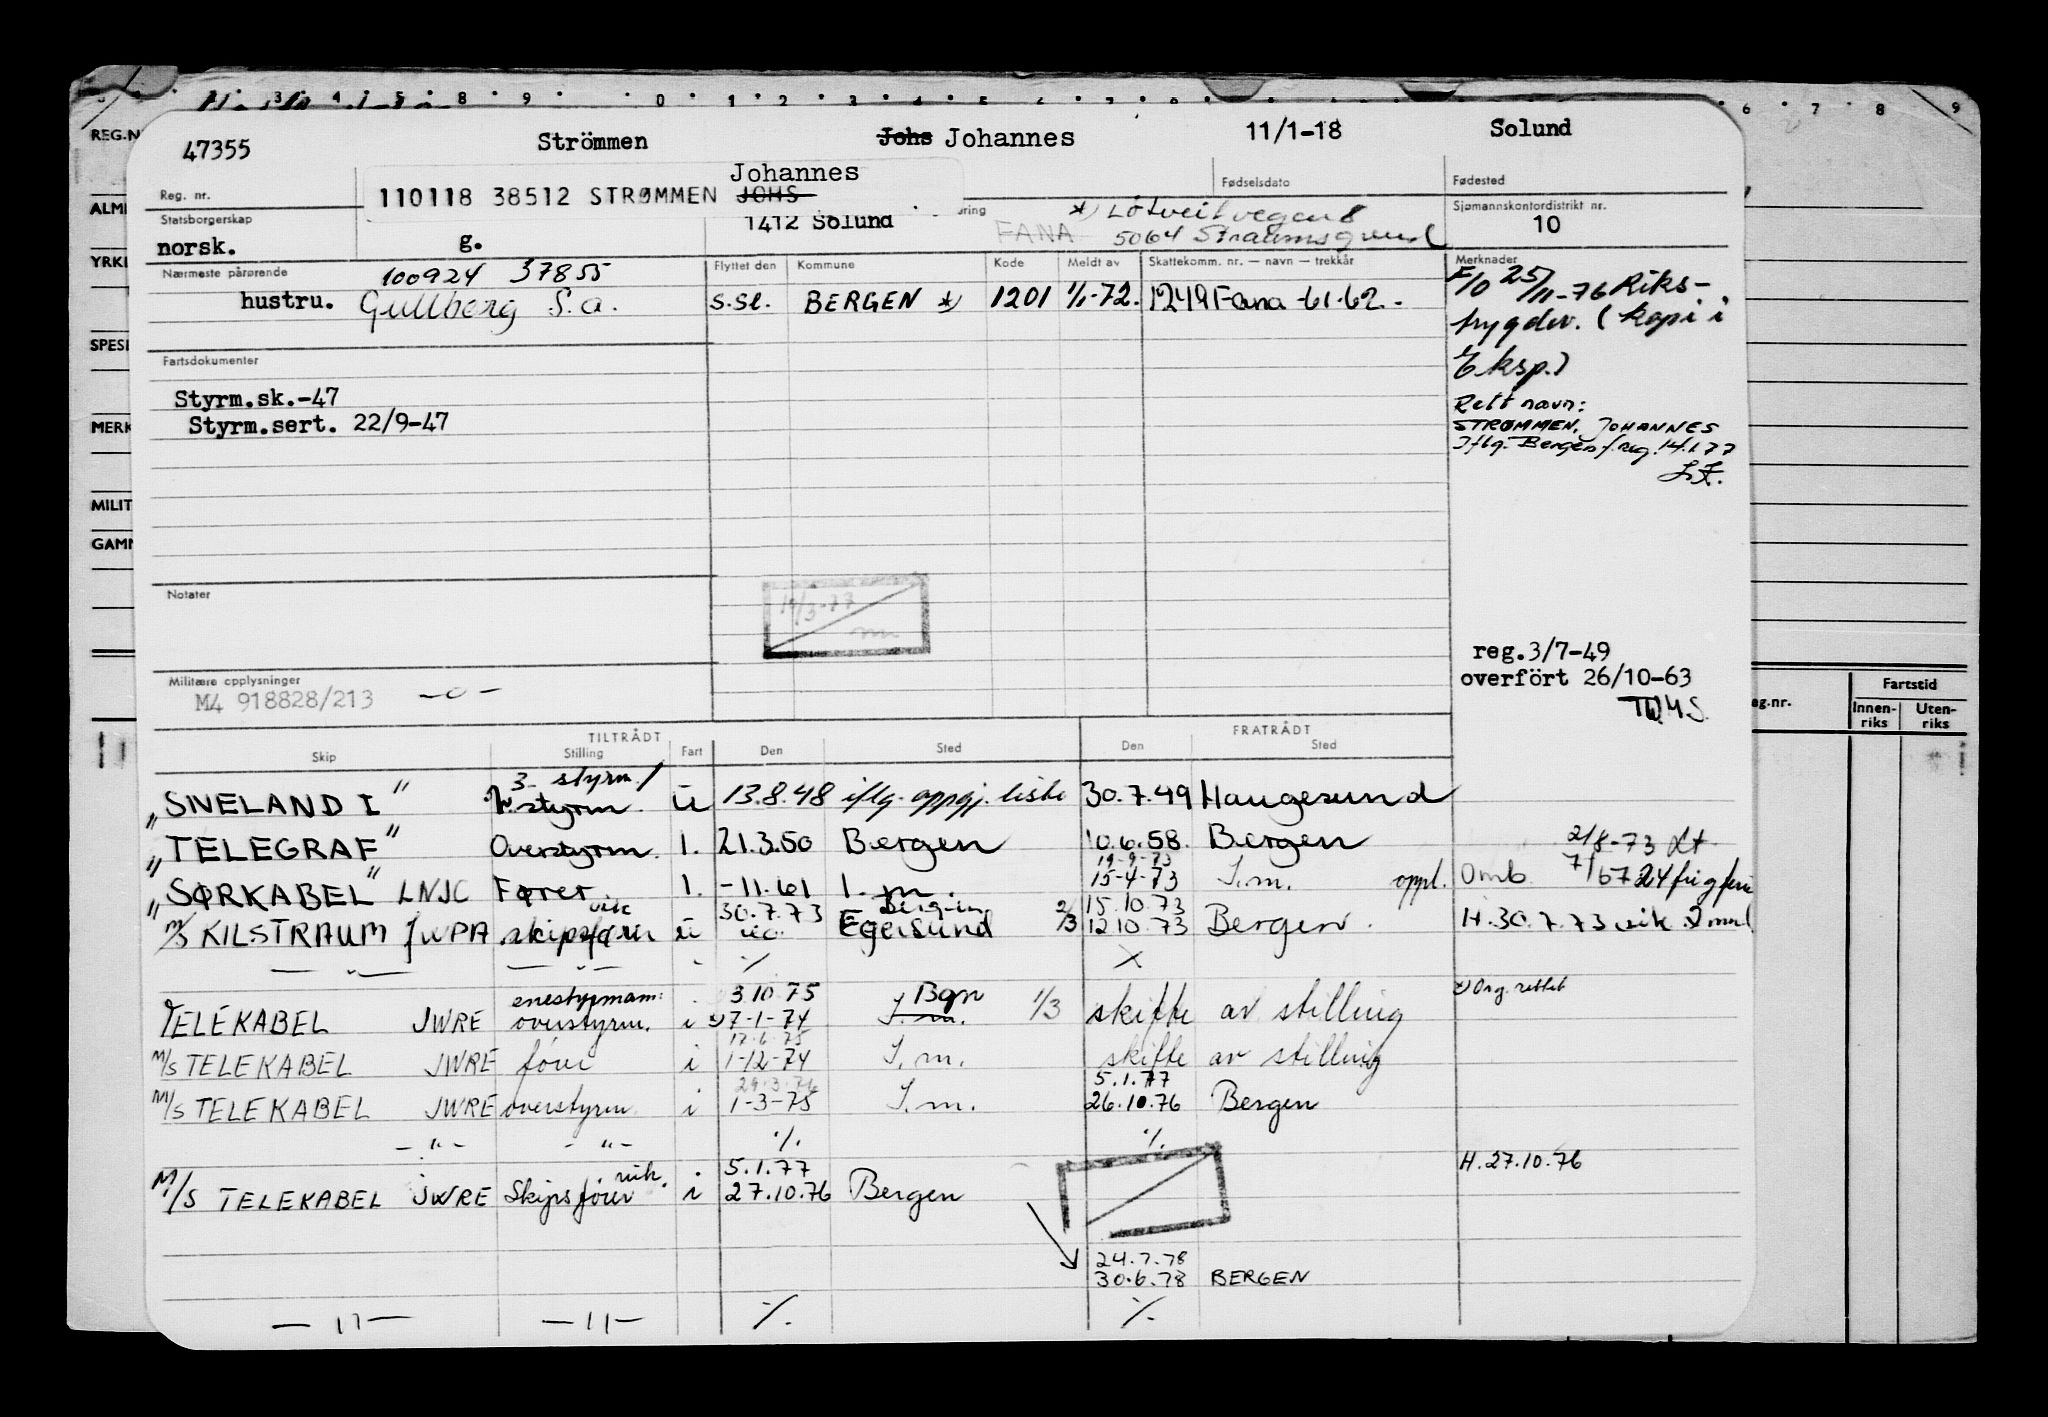 REG.N
47355
Strömmen
Johs Johannes
11/1-18
Solund
Reg. nr.
110118 38512 STRØMMEN JOHS
Johannes
Fødselsdato
Fødested
ALM
Statsborgerskap
norsk.
g.
1412 Solund
FANA
5064 Straumsgrend
Sjømannskontordistrikt nr.
10
YRK
Nærmeste pårørende
100924 37855
hustru. Gullborg S.a.
Flyttet den
Kommune
Kode
Meldt av
Skattekomm. nr. — navn — trekkår
Merknader
s.sl. BERGEN *) 1201 1/1-72. 1249 Fana -61-62.-
F/O 25/11-76 Riks-
trygdev. (kopi i
Eksp.)
SPESI
Fartsdokumenter
Styrm.sk.-47
Styrm.sert. 22/9-47
Rett navn:
STRØMMEN, JOHANNES
Iflg. Bergen f.reg. 14.1.77
MERK
MILIT
GAMM
Notater
14/3-77
reg.3/7-49
overfört 26/10-63
Militære opplysninger
M4 918828/213 -o-
TILTRÅDT
FRATRÅDT
Skip
Stilling
Fart
Den
Sted
Den
Sted
ag.nr.
Fartstid
Innen-
riks
Uten-
riks
3. styrm.
"SNELAND I" styrm. u 13.8.48 iflg. oppgj. liste 30.7.49 Haugesund
"TELEGRAF" Overstyrm. 1. 21.3.50 Bergen 10.6.58. Bergen
2/8-73
19-9-73
"SØRKABEL" LNJC Fører. 1. -11.61 I.m. 15-4-73 I.m. oppl.
Omb.
vik 30.7.73 Bergen 15.10.73
M/S KILSTRAUM JWPA skipsfører u Egersund 2/3 12.10.73 Bergen.
H.30.7.73 vik.
-"- -"- ./.
enestyrmann 3.10.75 Bgn
*) Org. rettet
TELEKABEL JWRE overstyrm. i 7-1-74 I.m. 1/3 skifte av stilling
17.6.75
M/S TELEKABEL JWRE fører i 1-12-74 I.m. skifte av stilling
29.3.76
5.1.77
M/S TELEKABEL JWRE overstyrm i 1-3-75 I.m. 26.10.76 Bergen
-"- -"- ./. ./.
H.27.10.76
vik. 5.1.77
M/S TELEKABEL JWRE Skipsfører i 27.10.76 Bergen
24.7.78
30.6.78 BERGEN
-"- -"- ./. ./.